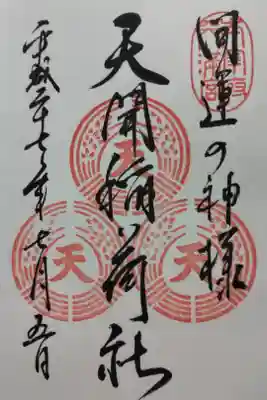 開運の神様
天開稲荷社
平成二十七年七月五日
天
天
天